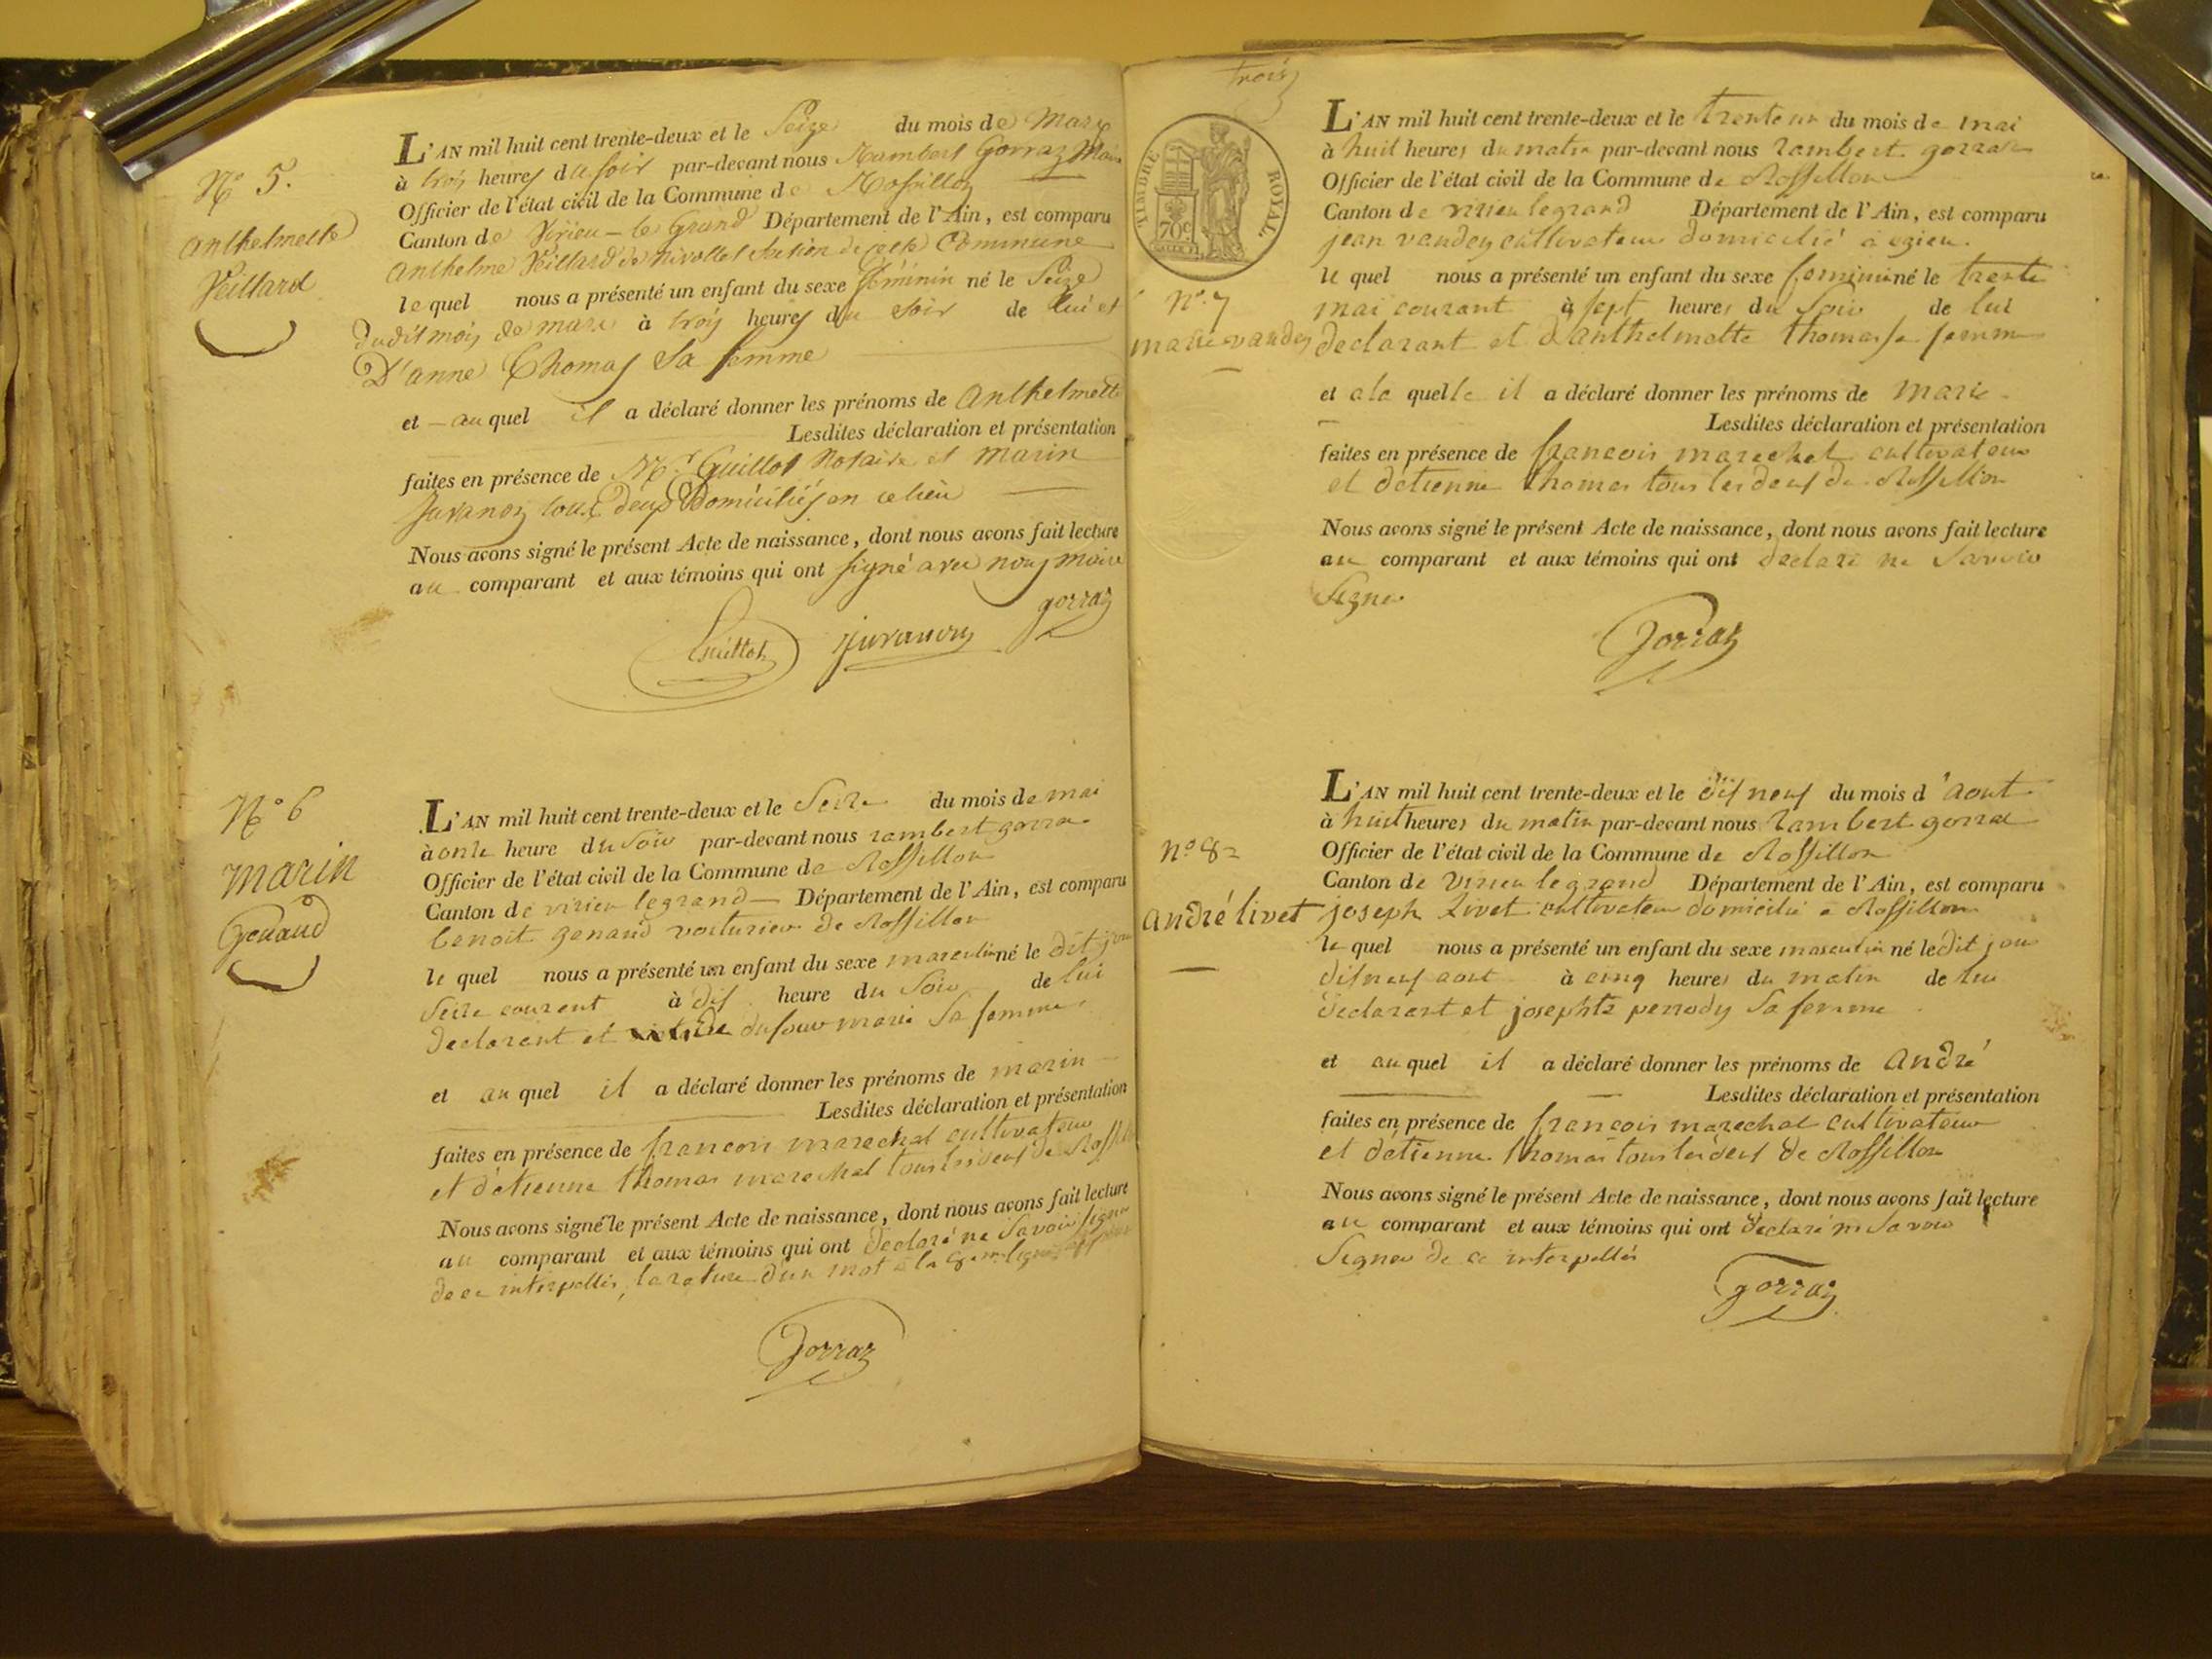 N° 5.
anthelmette
Veillard
L'AN mil huit cent trente-deux et le Seize du mois de Mars
à trois heures du soir par-devant nous Rambert Gorraz Maire
Officier de l'état civil de la Commune de Rossillon
Canton de Virieu-le-Grand Département de l'Ain, est comparu
anthelme Veillard de nivollet Section de cette Commune
lequel nous a présenté un enfant du sexe féminin né le Seize
dudit mois de mars à trois heures du soir de lui et
D'anne Thomas Sa femme
et au quel il a déclaré donner les prénoms de anthelmette
Lesdites déclaration et présentation
faites en présence de Mr Guillot Notaire et marin
Juvanon tous deux Domiciliés en ce lieu
Nous avons signé le présent Acte de naissance, dont nous avons fait lecture
au comparant et aux témoins qui ont signé avec nous maire
Guillot Juvanon gorraz
N° 6
marin
Genaud
L'AN mil huit cent trente-deux et le Seize du mois de mai
à onze heure du Soir par-devant nous rambert gorra
Officier de l'état civil de la Commune de Rossillon
Canton de virieu legrand Département de l'Ain, est comparu
benoit genaud voiturier de Rossillon
le quel nous a présenté un enfant du sexe masculin né le dit jour
Seize courent à dis heure du Soir de lui
declarent et dufour marie Sa femme
et au quel il a déclaré donner les prénoms de marin
Lesdites déclaration et présentation
faites en présence de francois marechal cultivateur
et d'etienne thomas marechal tous les deus de Rossillon
Nous avons signé le présent Acte de naissance, dont nous avons fait lecture
au comparant et aux témoins qui ont declaré ne Savoir signer
de ce interpellés, la rature d'un mot à la ligne
Gorraz
trois
TIMBRE ROYAL
70c.
N° 7
marie vandey
L'AN mil huit cent trente-deux et le trente un du mois de mai
à huit heures du matin par-devant nous rambert gorraz
Officier de l'état civil de la Commune de Rossillon
Canton de virieu legrand Département de l'Ain, est comparu
jean vandey cultivateur domicilié à
le quel nous a présenté un enfant du sexe feminin né le trente
mai courant à sept heures du Soir de lui
declarant et d'anthelmette thomas sa femme
et a la quelle il a déclaré donner les prénoms de marie
Lesdites déclaration et présentation
faites en présence de francois marechal cultivateur
et detienne thomas tous les deus de Rossillon
Nous avons signé le présent Acte de naissance, dont nous avons fait lecture
au comparant et aux témoins qui ont declaré ne Savoir
Signer
Gorraz
n° 8
andré livet
L'AN mil huit cent trente-deux et le disneuf du mois d'aout
à huit heures du matin par-devant nous rambert gorraz
Officier de l'état civil de la Commune de Rossillon
Canton de virieu legrand Département de l'Ain, est comparu
joseph livet cultivateur domicilié a Rossillon
le quel nous a présenté un enfant du sexe masculin né ledit jour
disneuf aout à cinq heures du matin de lui
declarant et josephte perrody Sa femme
et au quel il a déclaré donner les prénoms de andré
Lesdites déclaration et présentation
faites en présence de francois marechal cultivateur
et détienne thomas tous les deus de Rossillon
Nous avons signé le présent Acte de naissance, dont nous avons fait lecture
au comparant et aux témoins qui ont declaré ne Savoir
Signer de ce interpellés
gorraz